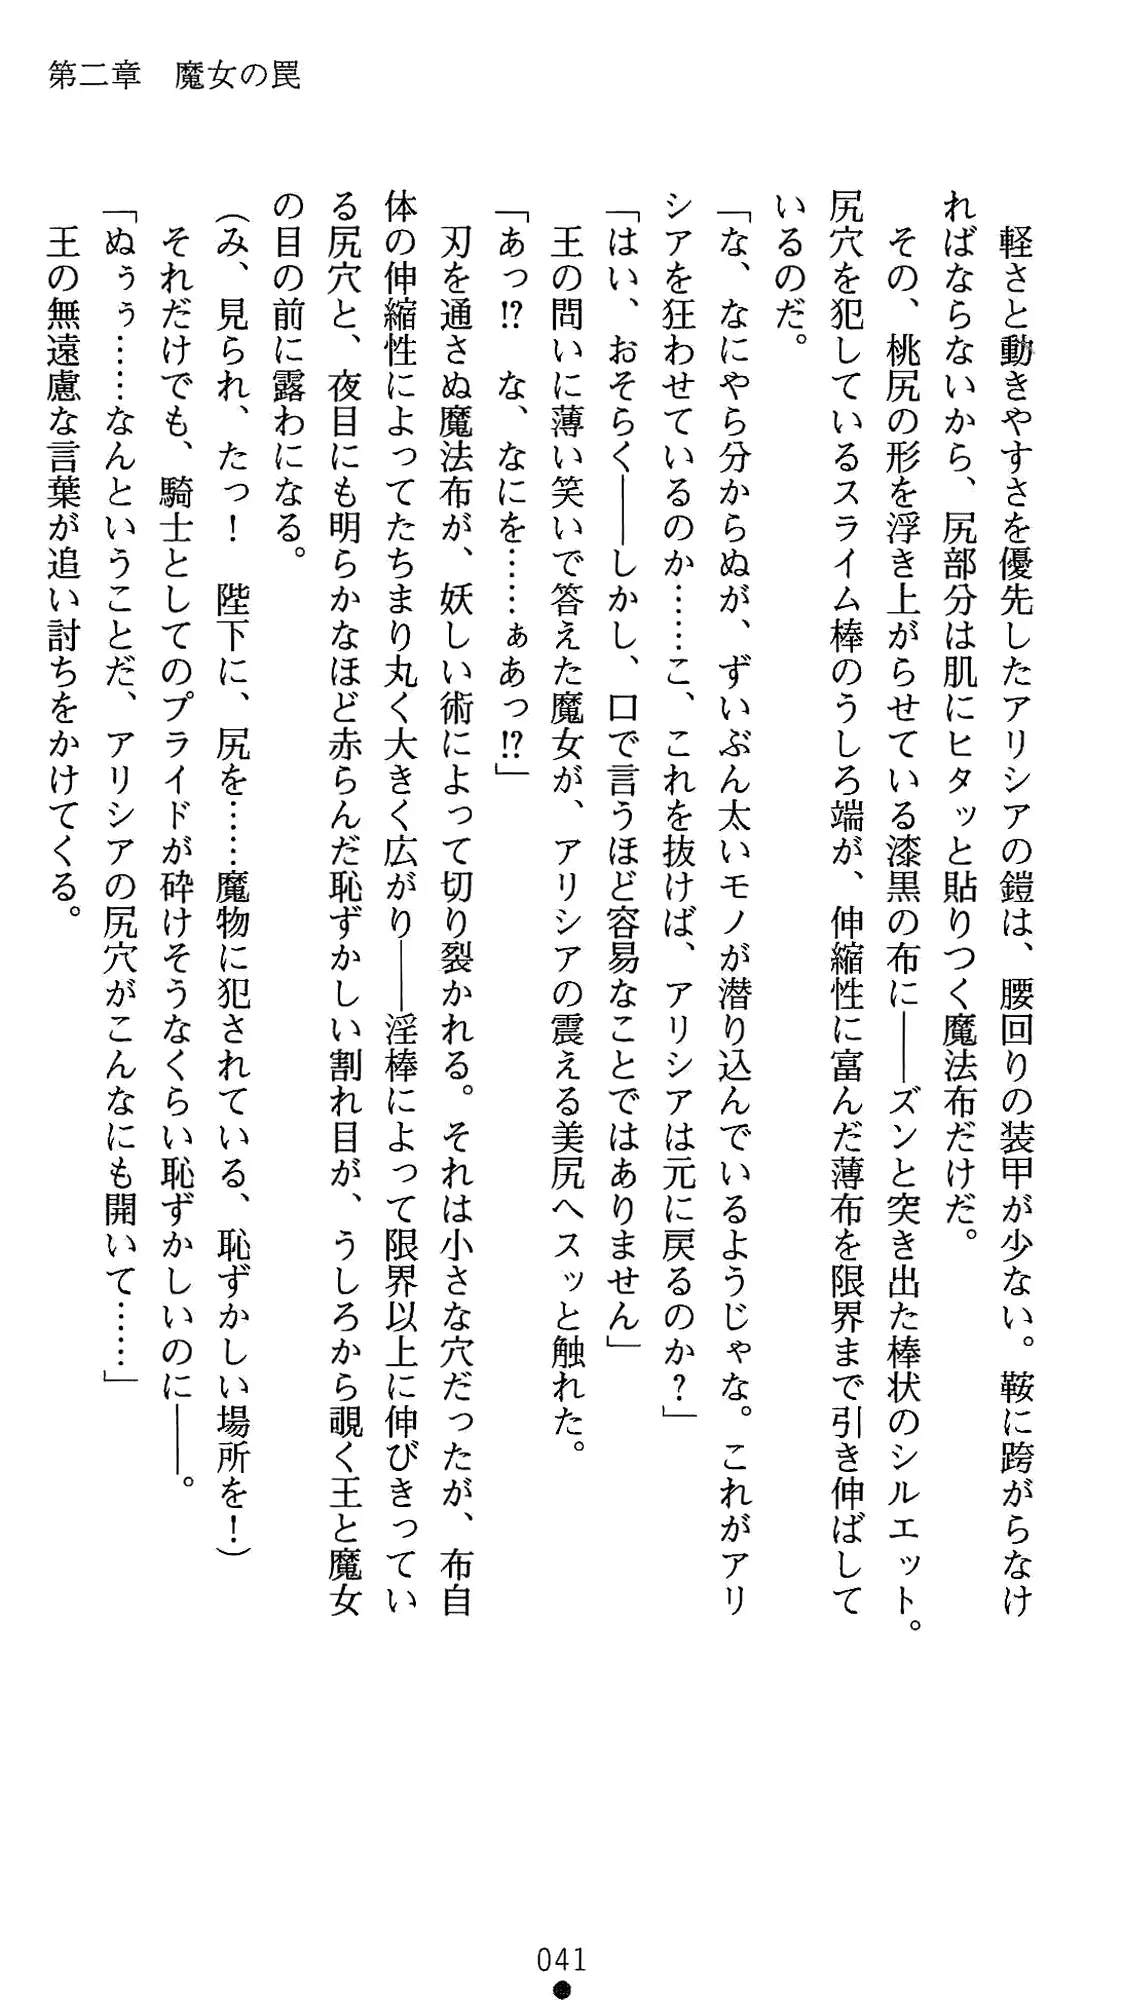 第二章　魔女の罠
　軽さと動きやすさを優先したアリシアの鎧は、腰回りの装甲が少ない。鞍に跨がらなけ
ればならないから、尻部分は肌にヒタッと貼りつく魔法布だけだ。
　その、桃尻の形を浮き上がらせている漆黒の布に――ズンと突き出た棒状のシルエット。
尻穴を犯しているスライム棒のうしろ端が、伸縮性に富んだ薄布を限界まで引き伸ばして
いるのだ。
「な、なにやら分からぬが、ずいぶん太いモノが潜り込んでいるようじゃな。これがアリ
シアを狂わせているのか……こ、これを抜けば、アリシアは元に戻るのか？」
「はい、おそらく――しかし、口で言うほど容易なことではありません」
　王の問いに薄い笑いで答えた魔女が、アリシアの震える美尻へスッと触れた。
「あっ!?　な、なにを……ぁあっ!?」
　刃を通さぬ魔法布が、妖しい術によって切り裂かれる。それは小さな穴だったが、布自
体の伸縮性によってたちまり丸く大きく広がり――淫棒によって限界以上に伸びきってい
る尻穴と、夜目にも明らかなほど赤らんだ恥ずかしい割れ目が、うしろから覗く王と魔女
の目の前に露わになる。
（み、見られ、たっ！　陛下に、尻を……魔物に犯されている、恥ずかしい場所を！）
　それだけでも、騎士としてのプライドが砕けそうなくらい恥ずかしいのに――。
「ぬぅぅ……なんということだ、アリシアの尻穴がこんなにも開いて……」
　王の無遠慮な言葉が追い討ちをかけてくる。
041